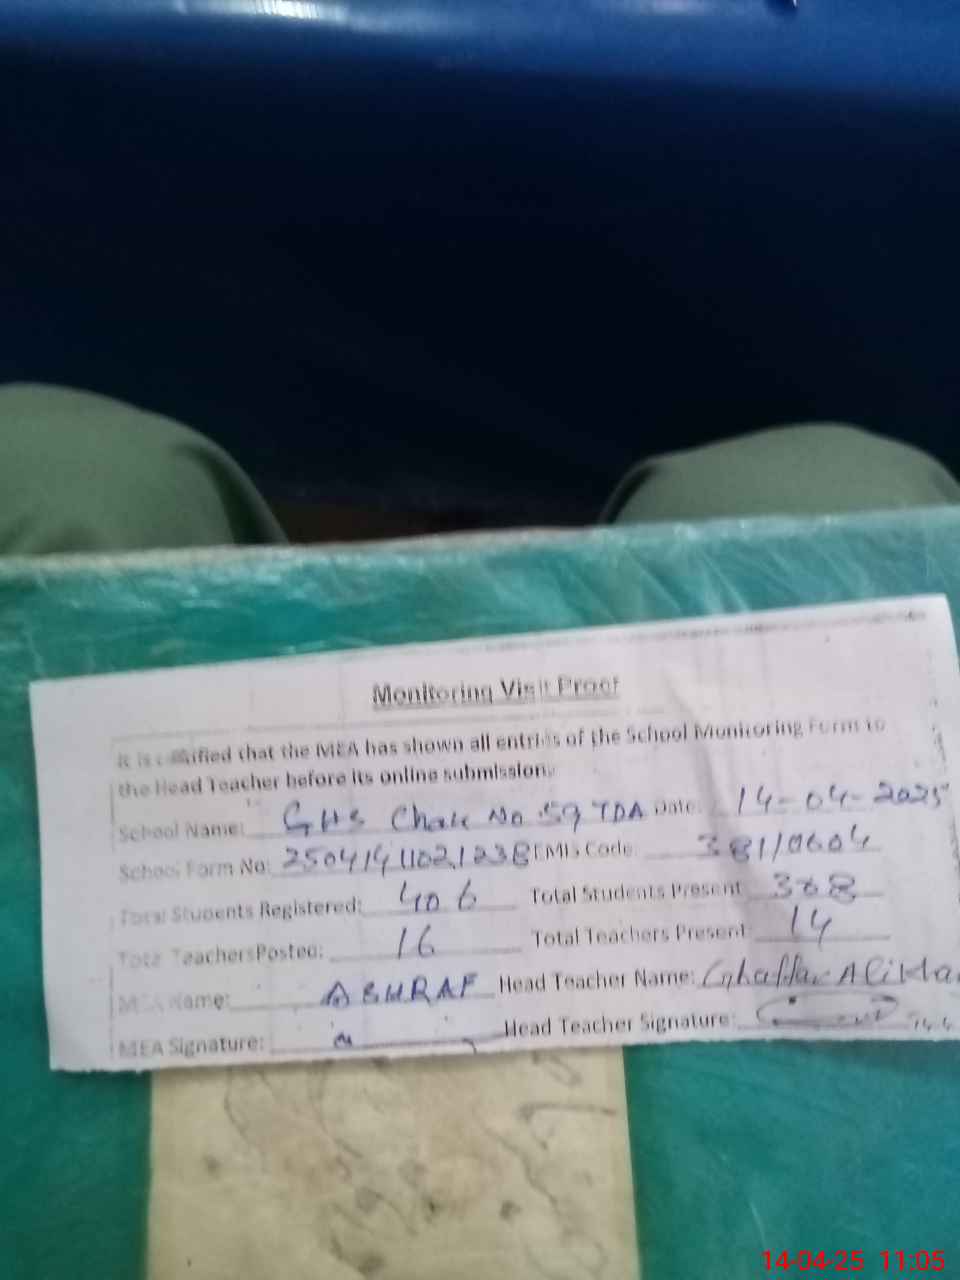 Monitoring Visit Proof
It is certified that the MEA has shown all entries of the School Monitoring Form to
the Head Teacher before its online submission.
School Name: GHS Chak No 59 TDA Date: 14-04-2025
School Form No: 25041411021238 EMIS Code: 38110604
Total Students Registered: 406 Total Students Present 368
Total TeachersPosted: 16 Total Teachers Present: 14
MEA Name: ASHRAF Head Teacher Name: Ghaffar Ali
MEA Signature: Head Teacher Signature:
14-04-25 11:05